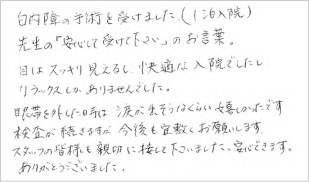 白内障の手術を受けました。(1泊入院)
先生の「安心して受けて下さい」のお言葉。
目はスッキリ見えるし、快適な入院でしたし
リラックスしかありませんでした。
眼帯を外した時は涙が出そうなくらい嬉しかったです
検査が続きますが今後も宜敷くお願いします
スタッフの皆様も親切に接して下さいました。安心できます。
ありがとうございました。